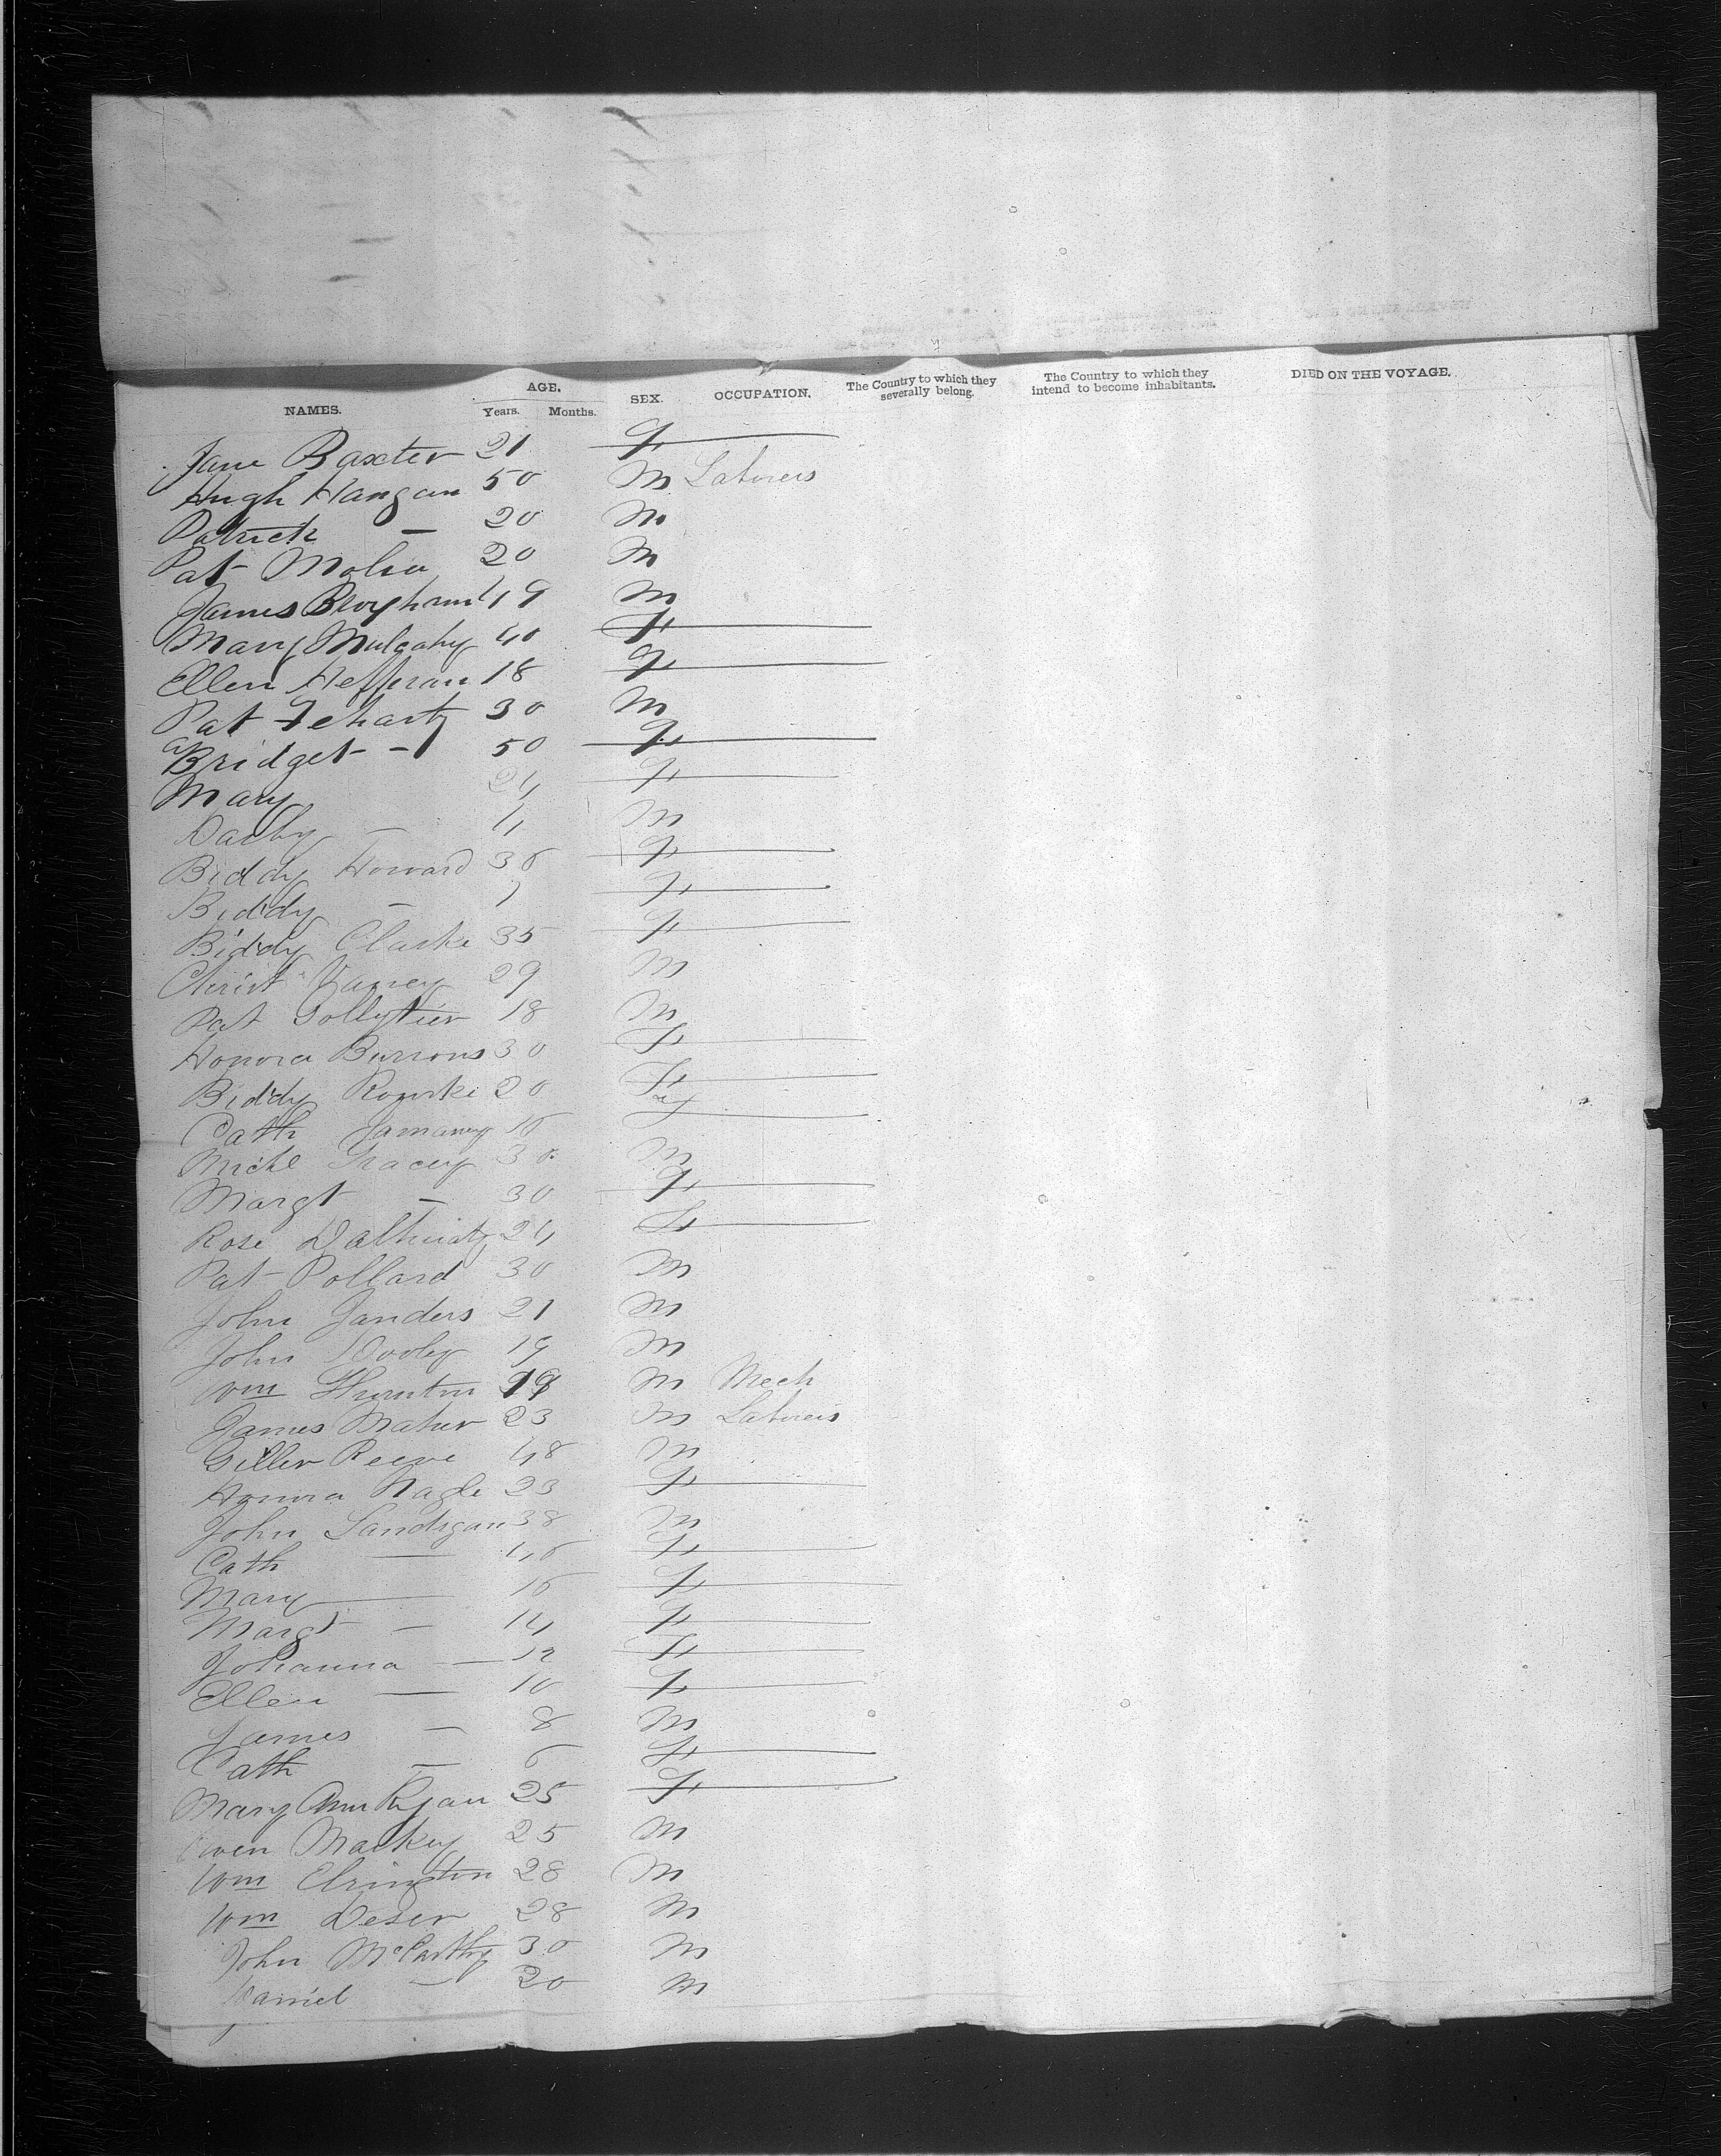 NAMES. AGE. Years. Months. SEX. OCCUPATION. The Country to which they severally belong. The Country to which they intend to become inhabitants. DIED ON THE VOYAGE.
Jane Baxter 21 F
Hugh Hangan 50 M Laborers
Patrick — 20 M
Pat 20 M
James 19 M
Mary Mulcahy 40 F
Ellen Heffernan 18 F
Pat 30 M
Bridget — 50 F
Mary 24 F
Darby — 4 M
Biddy Howard 36 F
Biddy — 1 F
Biddy Clarke 35 F
Christ 29 M
Pat 18 M
Honora Burrows 30 F
Biddy Rourke 20 F
Cath 16 F
Michl Tracey 30 M
Margt — 30 F
Rose 24 F
Pat Pollard 30 M
John Sanders 21 M
John Dooley 19 M
Wm Thornton 19 M Mech
James Maher 23 M Laborers
Reeve 48 M
Honora Nagle 23 F
John 38 M
Cath — 46 F
Mary — 16 F
Margt — 14 F
Johanna — 12 F
Ellen — 10 F
James — 8 M
Cath — 6 F
Mary Ann Ryan 25 F
Owen Markey 25 M
Wm Elrington 28 M
Wm 28 M
John McCarthy 30 M
Daniel — 20 M